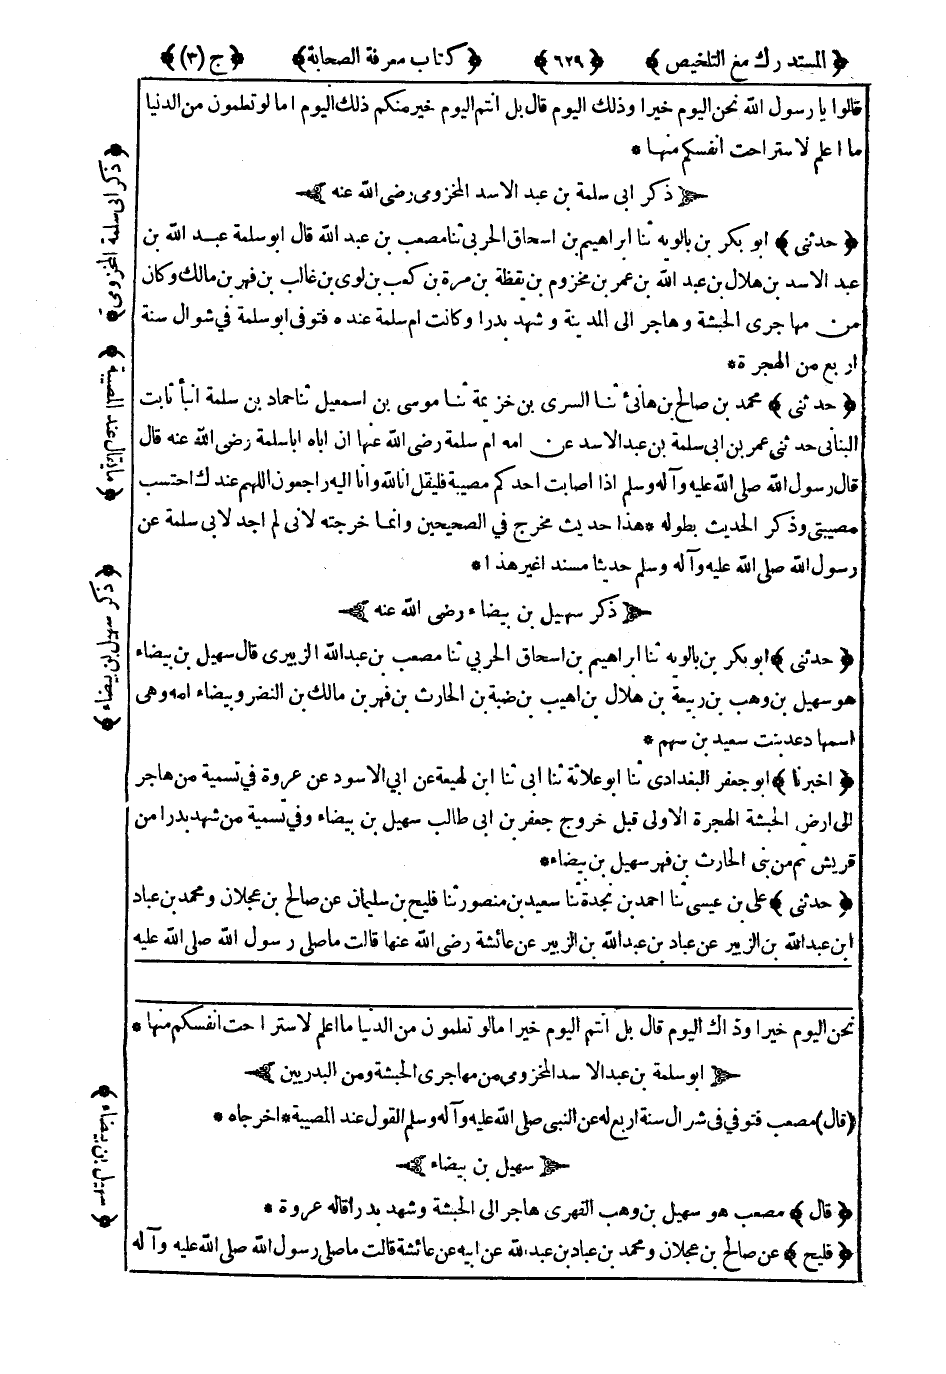 ﴿ المستدرك مع التلخيص ﴾ ﴿ ٦٢٩ ﴾ ﴿ كتاب معرفة الصحابة ﴾ ﴿ ج (٣) ﴾
قالوا يا رسول الله نحن اليوم خيرا وذلك اليوم قال بل انتم اليوم خير منكم ذلك اليوم اما لو تعلمون من الدنيا
ما اعلم لاستراحت انفسكم منها *
ذكر ابى سلمة بن عبد الاسد المخزومى رضى الله عنه
﴿ حدثنى ﴾ ابو بكر بن بالويه ثنا ابراهيم بن اسحاق الحربي ثنا مصعب بن عبد الله قال ابو سلمة عبد الله بن
عبد الاسد بن هلال بن عبد الله بن عمر بن مخزوم بن يقظة بن مرة بن كعب بن لوى بن غالب بن فهر بن مالك وكان
من مهاجرى الحبشة وهاجر الى المدينة وشهد بدرا وكانت ام سلمة عنده فتوفى ابو سلمة في شوال سنة
اربع من الهجرة *
﴿ حدثنى ﴾ محمد بن صالح بن هانئ ثنا السرى بن خزيمة ثنا موسى بن اسمعيل ثنا حماد بن سلمة انبأ ثابت
البنانى حدثنى عمر بن ابى سلمة بن عبد الاسد عن امه ام سلمة رضى الله عنها ان اباه ابا سلمة رضى الله عنه قال
قال رسول الله صلى الله عليه وآله وسلم اذا اصابت احدكم مصيبة فليقل انا لله وانا اليه راجعون اللهم عندك احتسب
مصيبتى وذكر الحديث بطوله * هذا حديث مخرج في الصحيحين وانما خرجته لانى لم اجد لابى سلمة عن
رسول الله صلى الله عليه وآله وسلم حديثا مسندا غير هذا *
ذكر سهيل بن بيضاء رضى الله عنه
﴿ حدثنى ﴾ ابو بكر بن بالويه ثنا ابراهيم بن اسحاق الحربي ثنا مصعب بن عبد الله الزبيرى قال سهيل بن بيضاء
هو سهيل بن وهب بن ربيعة بن هلال بن اهيب بن ضبة بن الحارث بن فهر بن مالك بن النضر وبيضاء امه وهى
اسمها دعد بنت سعيد بن سهم *
﴿ اخبرنا ﴾ ابو جعفر البغدادى ثنا ابو علاثة ثنا ابى ثنا ابن لهيعة عن ابي الاسود عن عروة في تسمية من هاجر
الى ارض الحبشة الهجرة الاولى قبل خروج جعفر بن ابى طالب سهيل بن بيضاء وفى تسمية من شهد بدرا من
قريش ثم من بنى الحارث بن فهر سهيل بن بيضاء *
﴿ حدثنى ﴾ على بن عيسى ثنا احمد بن نجدة ثنا سعيد بن منصور ثنا فليح بن سليمان عن صالح بن عجلان ومحمد بن عباد
ابن عبد الله بن الزبير عن عباد بن عبد الله بن الزبير عن عائشة رضى الله عنها قالت ما صلى رسول الله صلى الله عليه
نحن اليوم خيرا وذاك اليوم قال بل انتم اليوم خيرا ما لو تعلمون من الدنيا ما اعلم لاستراحت انفسكم منها *
ابو سلمة بن عبد الاسد المخزومى من مهاجرى الحبشة ومن البدريين
(قال) مصعب فتوفى فى شرال سنة اربع له عن النبى صلى الله عليه وآله وسلم القول عند المصيبة * اخرجاه *
سهيل بن بيضاء
﴿ قال ﴾ مصعب هو سهيل بن وهب الفهرى هاجر الى الحبشة وشهد بدرا قاله عروة *
﴿ فليح ﴾ عن صالح بن عجلان ومحمد بن عباد بن عبد الله عن ابيه عن عائشة قالت ما صلى رسول الله صلى الله عليه وآله
﴿ ذكر ابى سلمة المخزومى ﴾
﴿ ماذا قال عند المصيبة ﴾
﴿ ذكر سهيل بن بيضاء ﴾
﴿ سهيل بن بيضاء ﴾